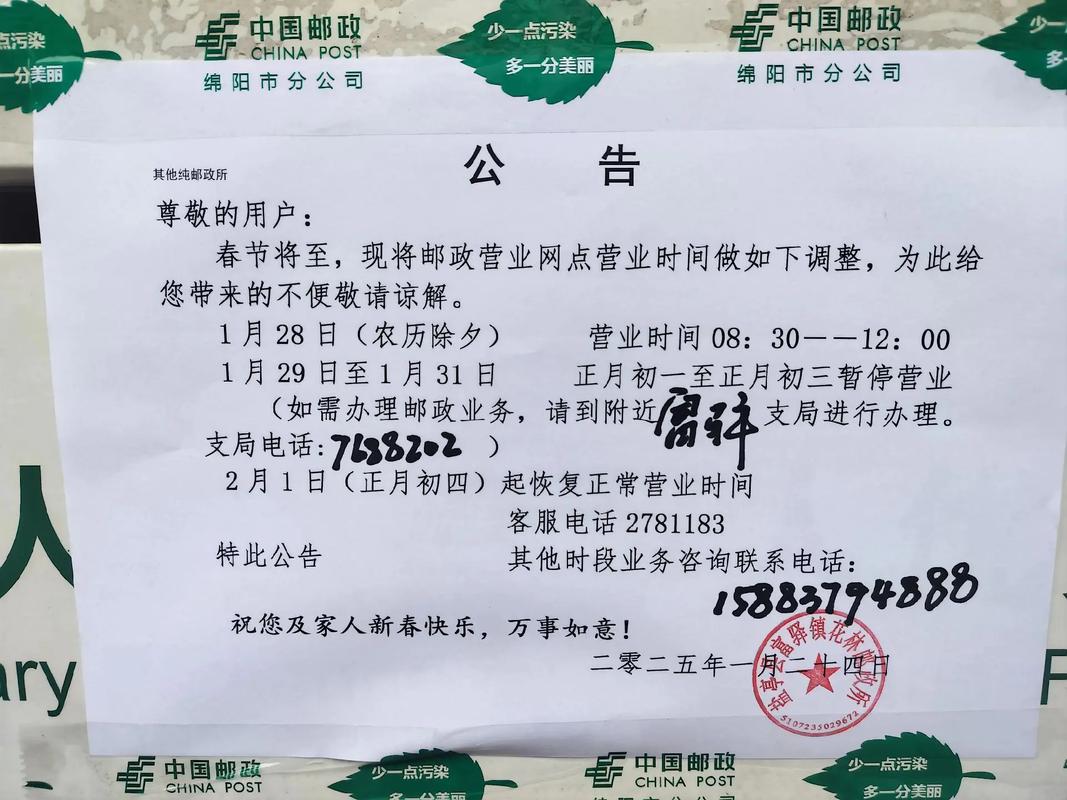 少一点污染
多一分美丽
中国邮政
CHINA POST
绵阳市分公司
少一点污染
多一分美丽
中国邮政
CHINA POST
绵阳市分公司
少一
多一
公 告
其他纯邮政所
尊敬的用户：
春节将至，现将邮政营业网点营业时间做如下调整，为此给
您带来的不便敬请谅解。
1月28日（农历除夕） 营业时间 08：30——12：00
1月29日至1月31日 正月初一至正月初三暂停营业
（如需办理邮政业务，请到附近富驿支局进行办理。
支局电话：7688202 ）
2月1日（正月初四）起恢复正常营业时间
客服电话 2781183
特此公告 其他时段业务咨询联系电话：
15883794888
祝您及家人新春快乐，万事如意！
二零二五年一月二十四日
盐亭县富驿镇花林邮政所
5107235029672
人
ary
中国邮政
CHINA POST
少一点污染
多一分美丽
中国邮政
CHINA POST
绵阳市分公司
少一点污染
多一分美丽